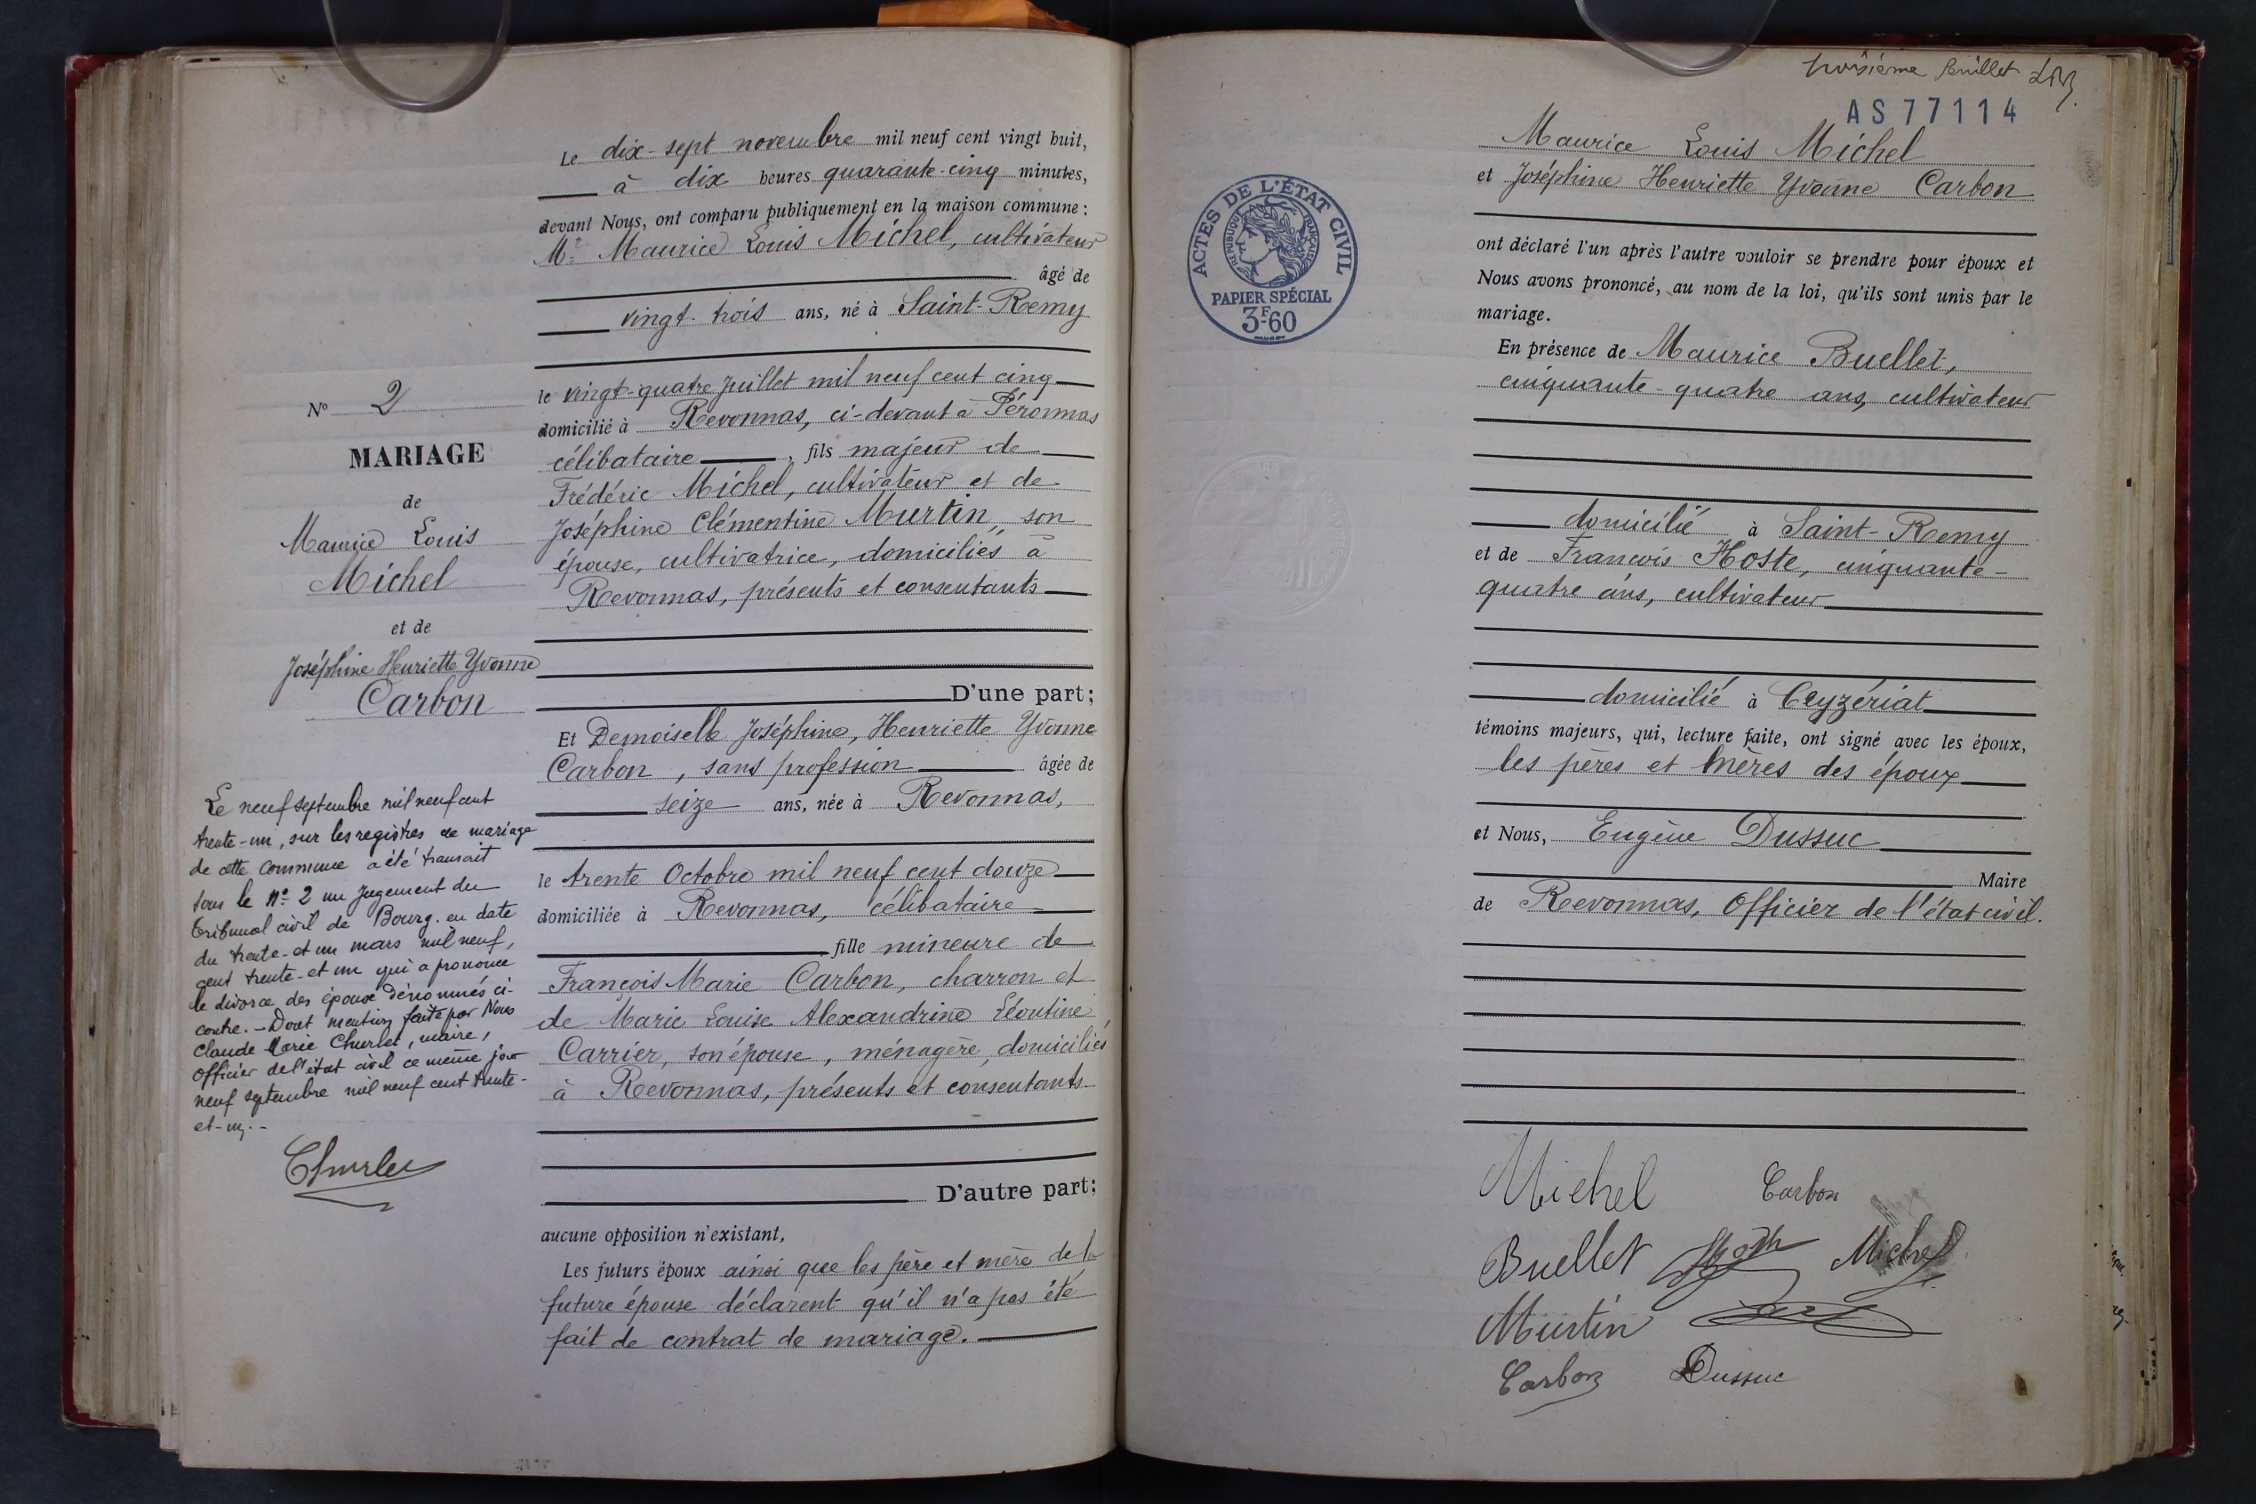 Le dix-sept novembre mil neuf cent vingt huit,
à dix heures quarante-cinq minutes,
devant Nous, ont comparu publiquement en la maison commune :
Mr Maurice Louis Michel, cultivateur
âgé de
vingt-trois ans, né à Saint-Remy
le vingt-quatre juillet mil neuf cent cinq
domicilié à Revonnas, ci-devant à Péronnas
célibataire, fils majeur de
Frédéric Michel, cultivateur et de
Joséphine Clémentine Murtin, son
épouse, cultivatrice, domiciliés à
Revonnas, présents et consentants
D'une part;
Et Demoiselle Joséphine, Henriette Yvonne
Carbon, sans profession âgée de
seize ans, née à Revonnas,
le trente Octobre mil neuf cent douze
domiciliée à Revonnas, célibataire
fille mineure de
François Marie Carbon, charron et
de Marie Louise Alexandrine Léontine
Carrier, son épouse, ménagère, domiciliés
à Revonnas, présents et consentants
D'autre part;
aucune opposition n'existant,
Les futurs époux ainsi que les père et mère de la
future épouse déclarent qu'il n'a pas été
fait de contrat de mariage.
No 2
MARIAGE
de
Maurice Louis
Michel
et de
Joséphine Henriette Yvonne
Carbon
Le neuf septembre mil neuf cent
trente-un, sur les registres de mariage
de cette commune a été transcrit
sous le No 2 un jugement du
tribunal civil de Bourg. en date
du trente-et un mars mil neuf,
cent trente-et un qui a prononcé
le divorce des époux dénommés ci-
contre. - Dont mention faite par Nous
Claude Marie Churlet, maire,
officier de l'état civil ce même jour
neuf septembre mil neuf cent trente-
et-un.-
Churlet
troisième feuillet
AS77114
ACTES DE L'ÉTAT CIVIL
RÉPUBLIQUE FRANÇAISE
PAPIER SPÉCIAL
3F-60
Maurice Louis Michel
et Joséphine Henriette Yvonne Carbon
ont déclaré l'un après l'autre vouloir se prendre pour époux et
Nous avons prononcé, au nom de la loi, qu'ils sont unis par le
mariage.
En présence de Maurice Buellet,
cinquante-quatre ans, cultivateur
domicilié à Saint-Remy
et de François Hoste, cinquante-
quatre ans, cultivateur
domicilié à Ceyzériat
témoins majeurs, qui, lecture faite, ont signé avec les époux,
les pères et mères des époux
et Nous, Eugène Dussuc
Maire
de Revonnas, Officier de l'état civil.
Michel Carbon
Buellet Michel
Murtin
Carbon Dussuc